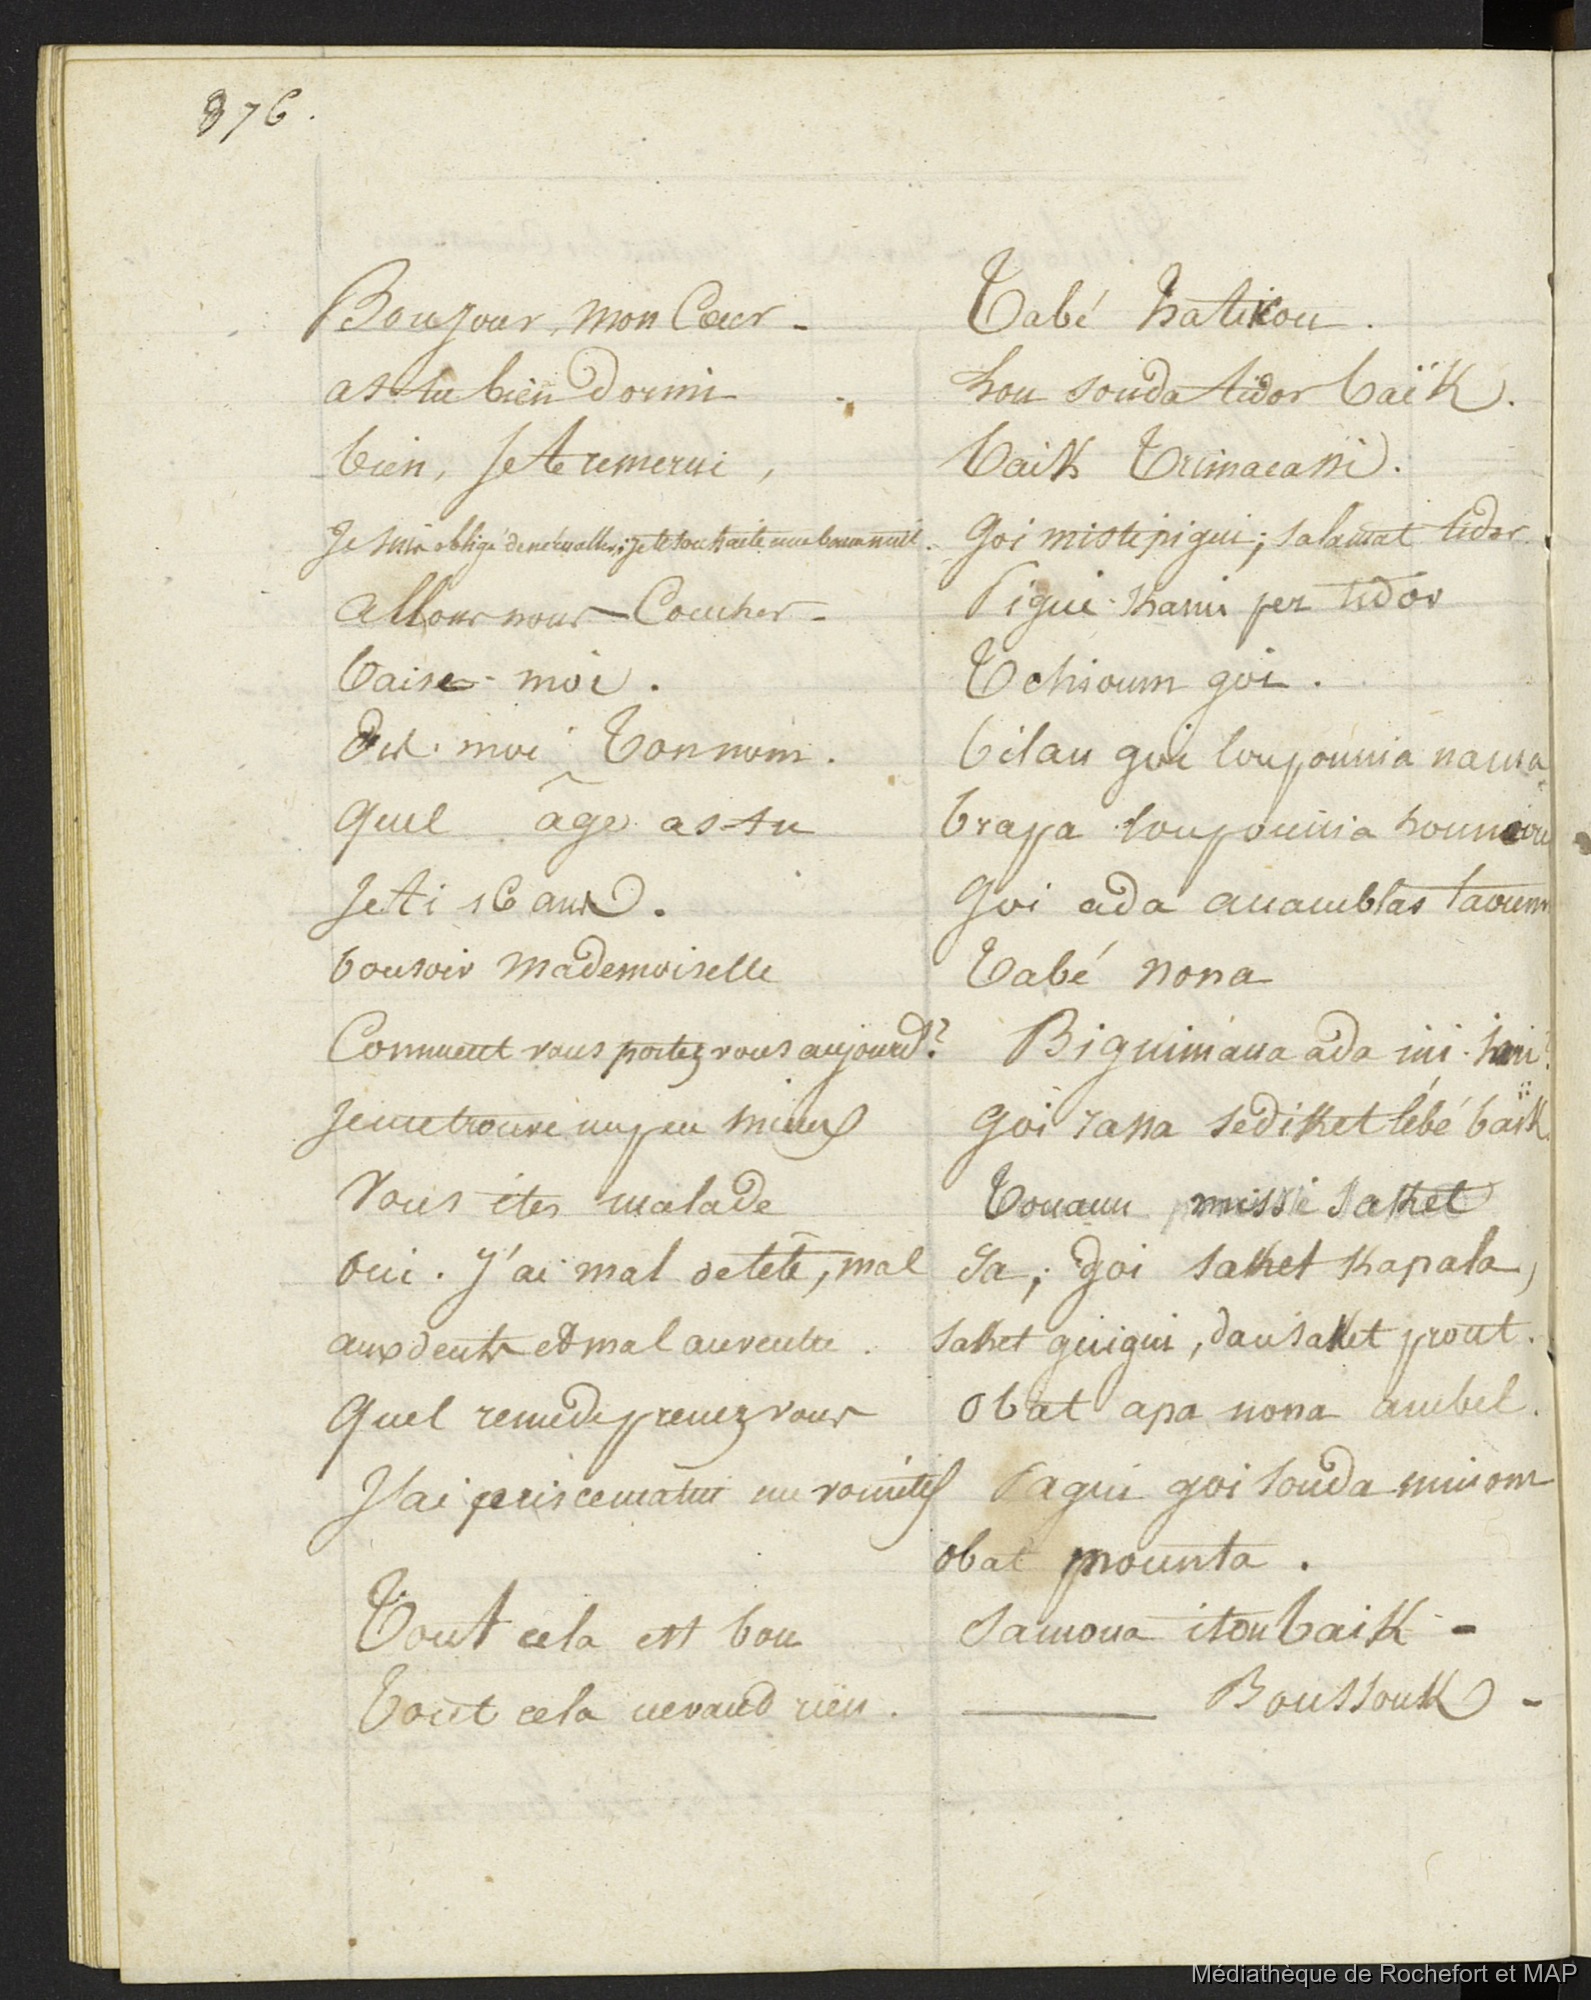 376.
Bonjour, mon Coeur - Tabé hatikou.
as-tu bien Dormi - hou souda tidor baïk.
bien, je te remercie, baik Trimacassi.
Je suis obligé de m'en aller; je te souhaite une bonne nuit. Goi miste pigui; salamat tidor.
allons nous Coucher - Pigui kami per tidor
baise-moi. Tchioum goi.
dis-moi Ton nom. bilan goi loupounia nama
quel âge as-tu brapa loupounia houmour
Je ti 16 ans. goi ada anamblas taoum
bonsoir Mademoiselle Tabé nona
Comment vous portez vous aujourd? Biguimana ada ini hari?
Je me trouve un peu mieux Goi rassa sedikket lébé baïk.
Vous êtes malade Touann missi sakket
oui. J'ai mal de tête, mal Ia; goi sakket kapala,
aux dents et mal au ventre. sakket guigui, dan sakket prout.
quel remede prenez vous obat apa nona ambel.
J'ai pris ce matin un vomitif Pagui goi souda minom
obat mounta.
Tout cela est bon Samoua itou baik -
Tout cela ne vaud rien. ——— Boussouk -
Médiathèque de Rochefort et MAP